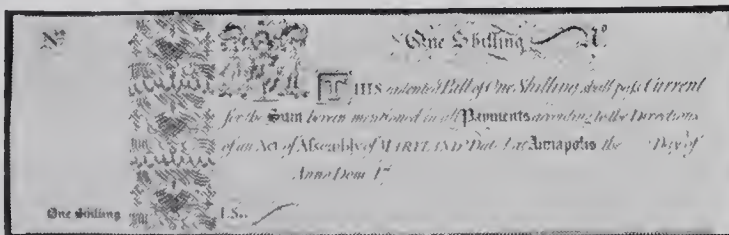 No One Shilling No
THIS indented Bill of One Shilling shall pass Current
for the Sum herein mentioned in all Payments according to the Directions
of an Act of Assembly of MARYLAND Dated at Annapolis the Day of
Anno Dom. 17
One shilling 1.S..